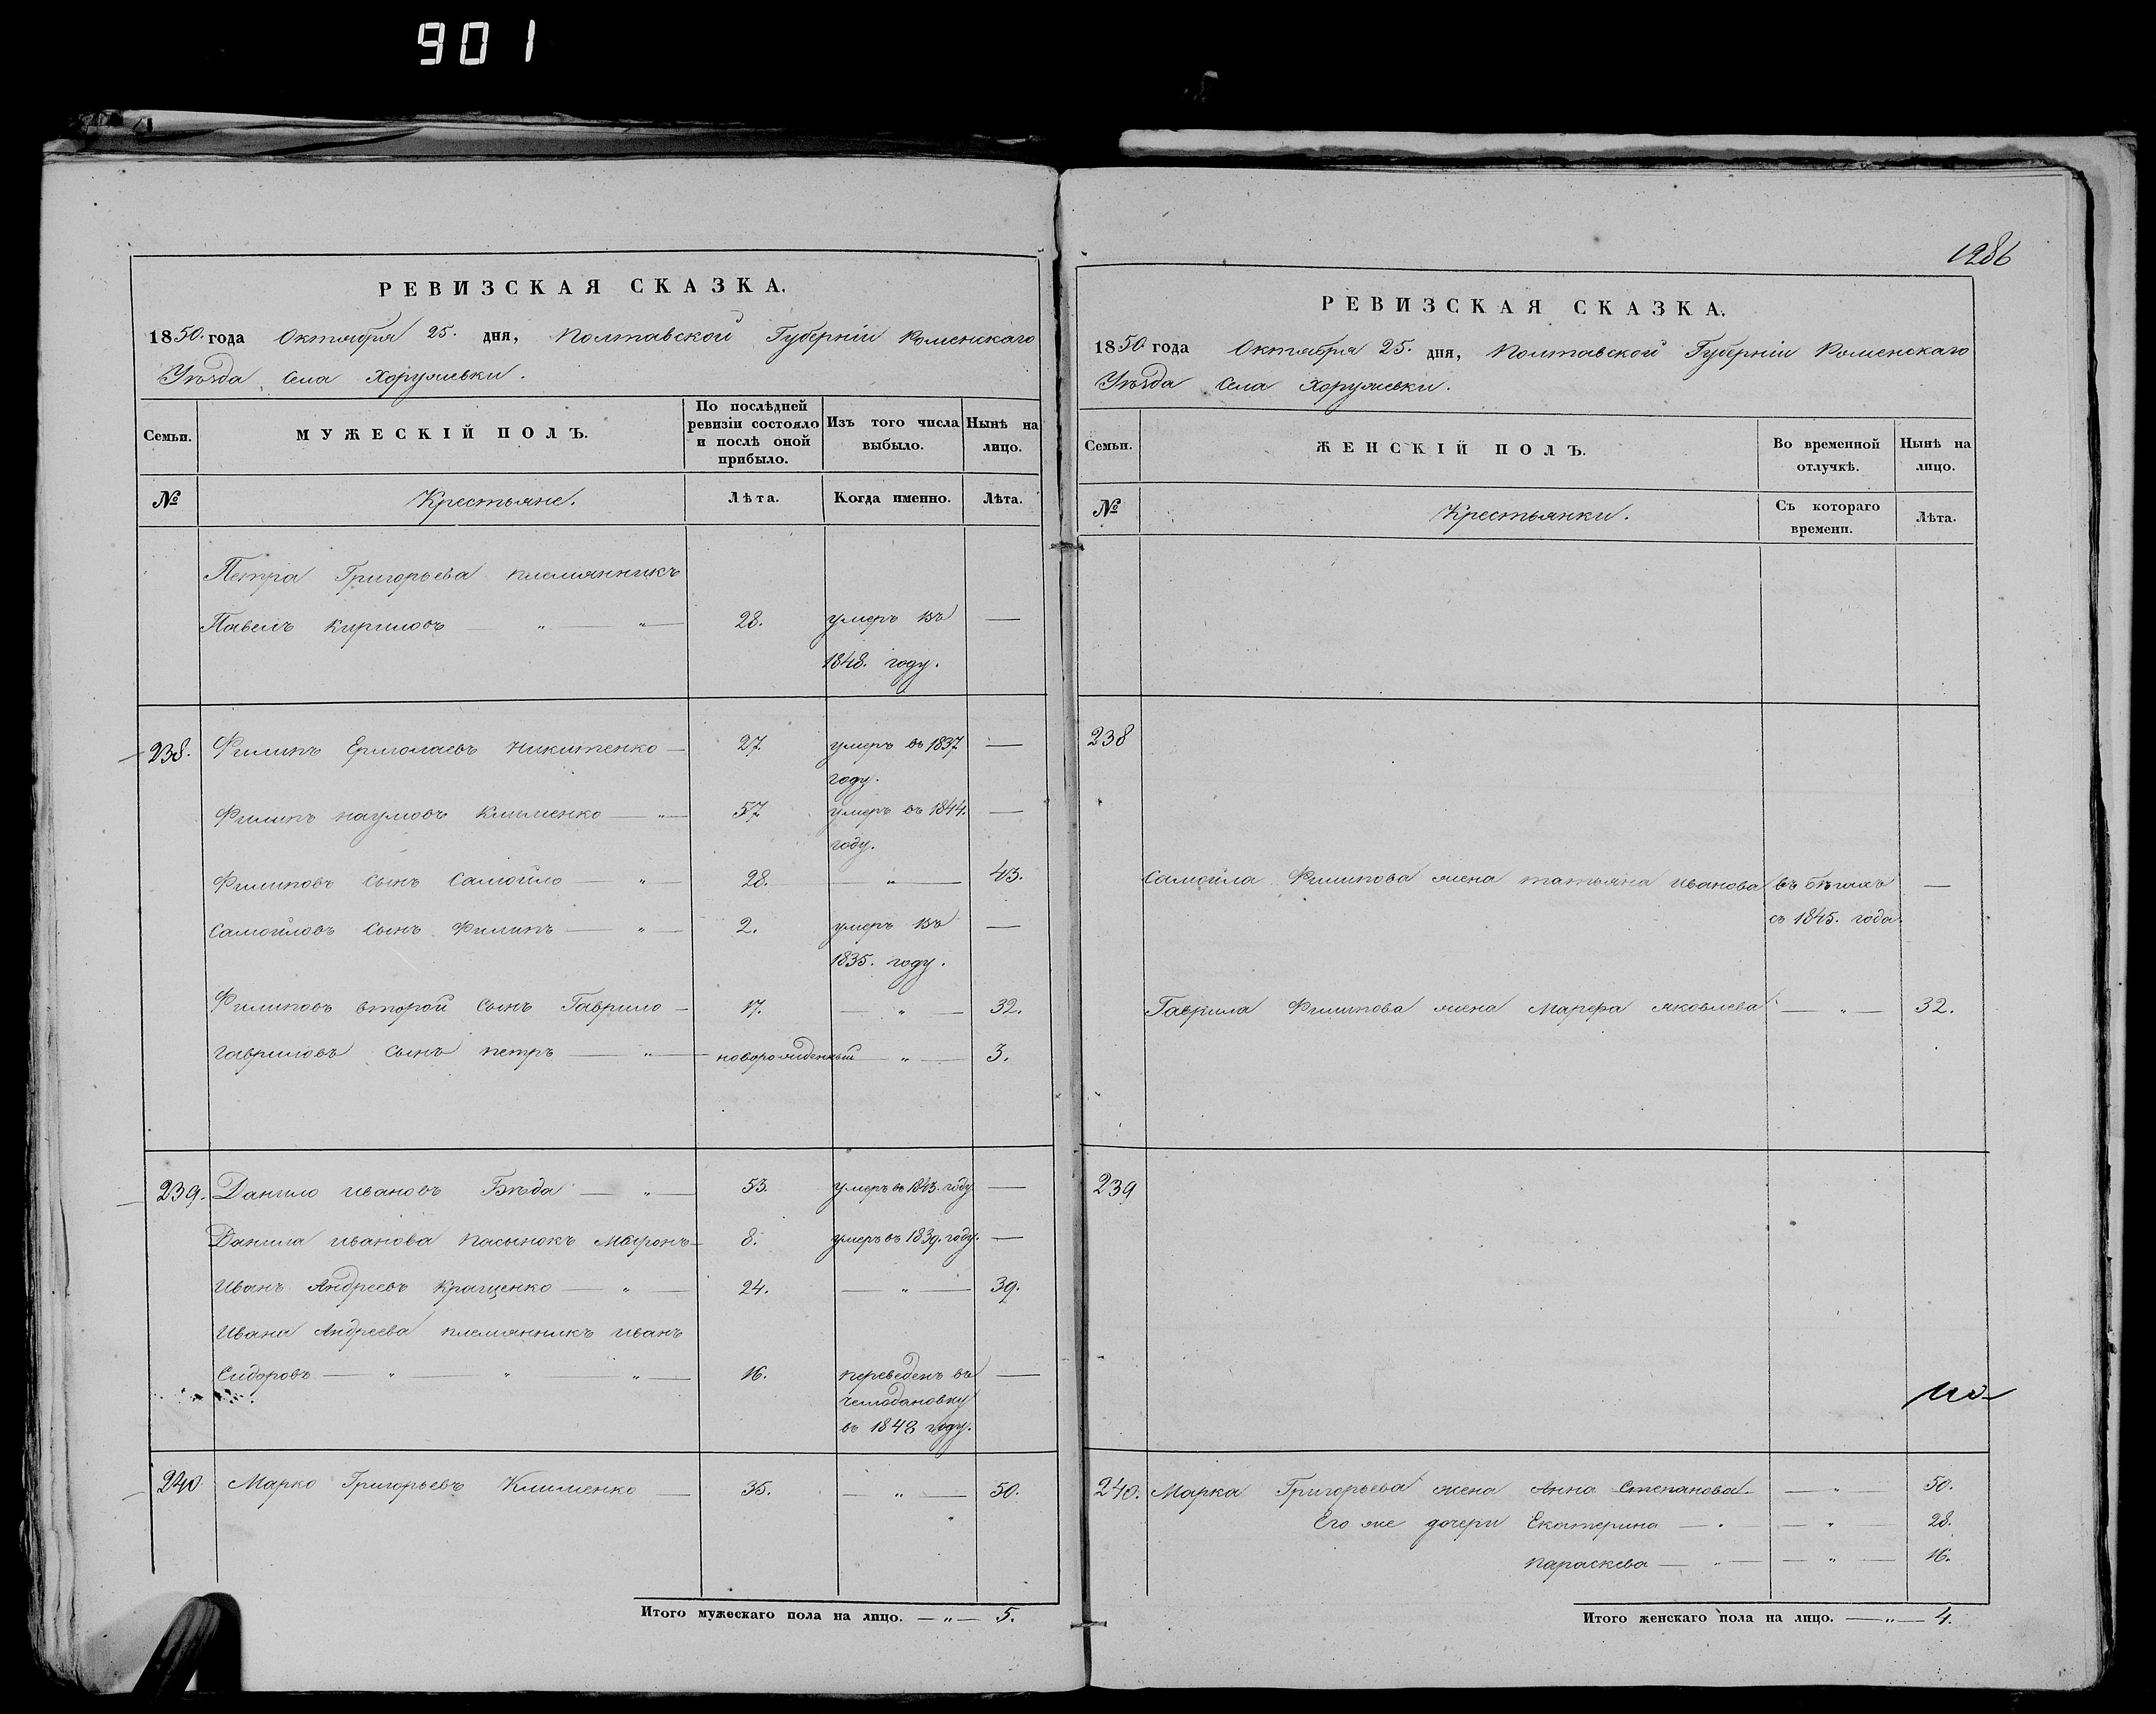 901
РЕВИЗСКАЯ СКАЗКА.
1850. года Октября 25. дня, Полтавской Губерніи Роменскаго
Уѣзда Села Хоружевки.
Семьи.
МУЖЕСКІЙ ПОЛЪ.
По послѣдней ревизіи состояло и послѣ оной прибыло.
Изъ того числа выбыло.
Нынѣ на лицо.
№ Крестьяне. Лѣта. Когда именно. Лѣта.
Петра Григорьева племянникъ
Павелъ Кириловъ — „ — „ — 28. умеръ въ —
1848. году.
238. Филипъ Ермолаевъ Никитенко — 27. умеръ въ 1837 —
году.
Филипъ Наумовъ Клименко — „ — 57 умеръ въ 1844. —
году.
Филиповъ сынъ Самойло — „ — 28. — „ — 43.
Самойловъ сынъ Филипъ — „ — 2. умеръ въ —
1835. году.
Филиповъ второй сынъ Гаврило — 17. — „ — 32.
Гавриловъ сынъ Петръ — „ — новорожденный — „ — 3.
239. Данило Ивановъ Бѣда — „ — 53. умеръ въ 1843. году —
Данила Иванова пасынокъ Миронъ — 8. умеръ въ 1839. году. —
Иванъ Андреевъ Кращенко — „ — 24. — „ — 39.
Ивана Андреева племянникъ Иванъ
Сидоровъ — „ — „ — „ — 16. переведенъ въ —
Чемодановку
въ 1848 году.
240. Марко Григорьевъ Клименко — 35. — „ — 50.
Итого мужескаго пола на лицо. — „ — 5.
1286
РЕВИЗСКАЯ СКАЗКА.
1850 года Октября 25. дня, Полтавской Губерніи Роменскаго
Уѣзда Села Хоружевки.
Семьи.
ЖЕНСКІЙ ПОЛЪ.
Во временной отлучкѣ.
Нынѣ на лицо.
№ Крестьянки. Съ котораго времени. Лѣта.
238
Самойла Филипова жена Татьяна Иванова въ бѣгахъ —
съ 1845. года.
Гаврила Филипова жена Марфа Яковлева — „ — 32.
239
240. Марка Григорьева жена Анна Степанова — „ — 50.
Его же дочери Екатерина — „ — „ 28.
Параскева — „ — „ — 16.
Итого женскаго пола на лицо. — „ — 4.